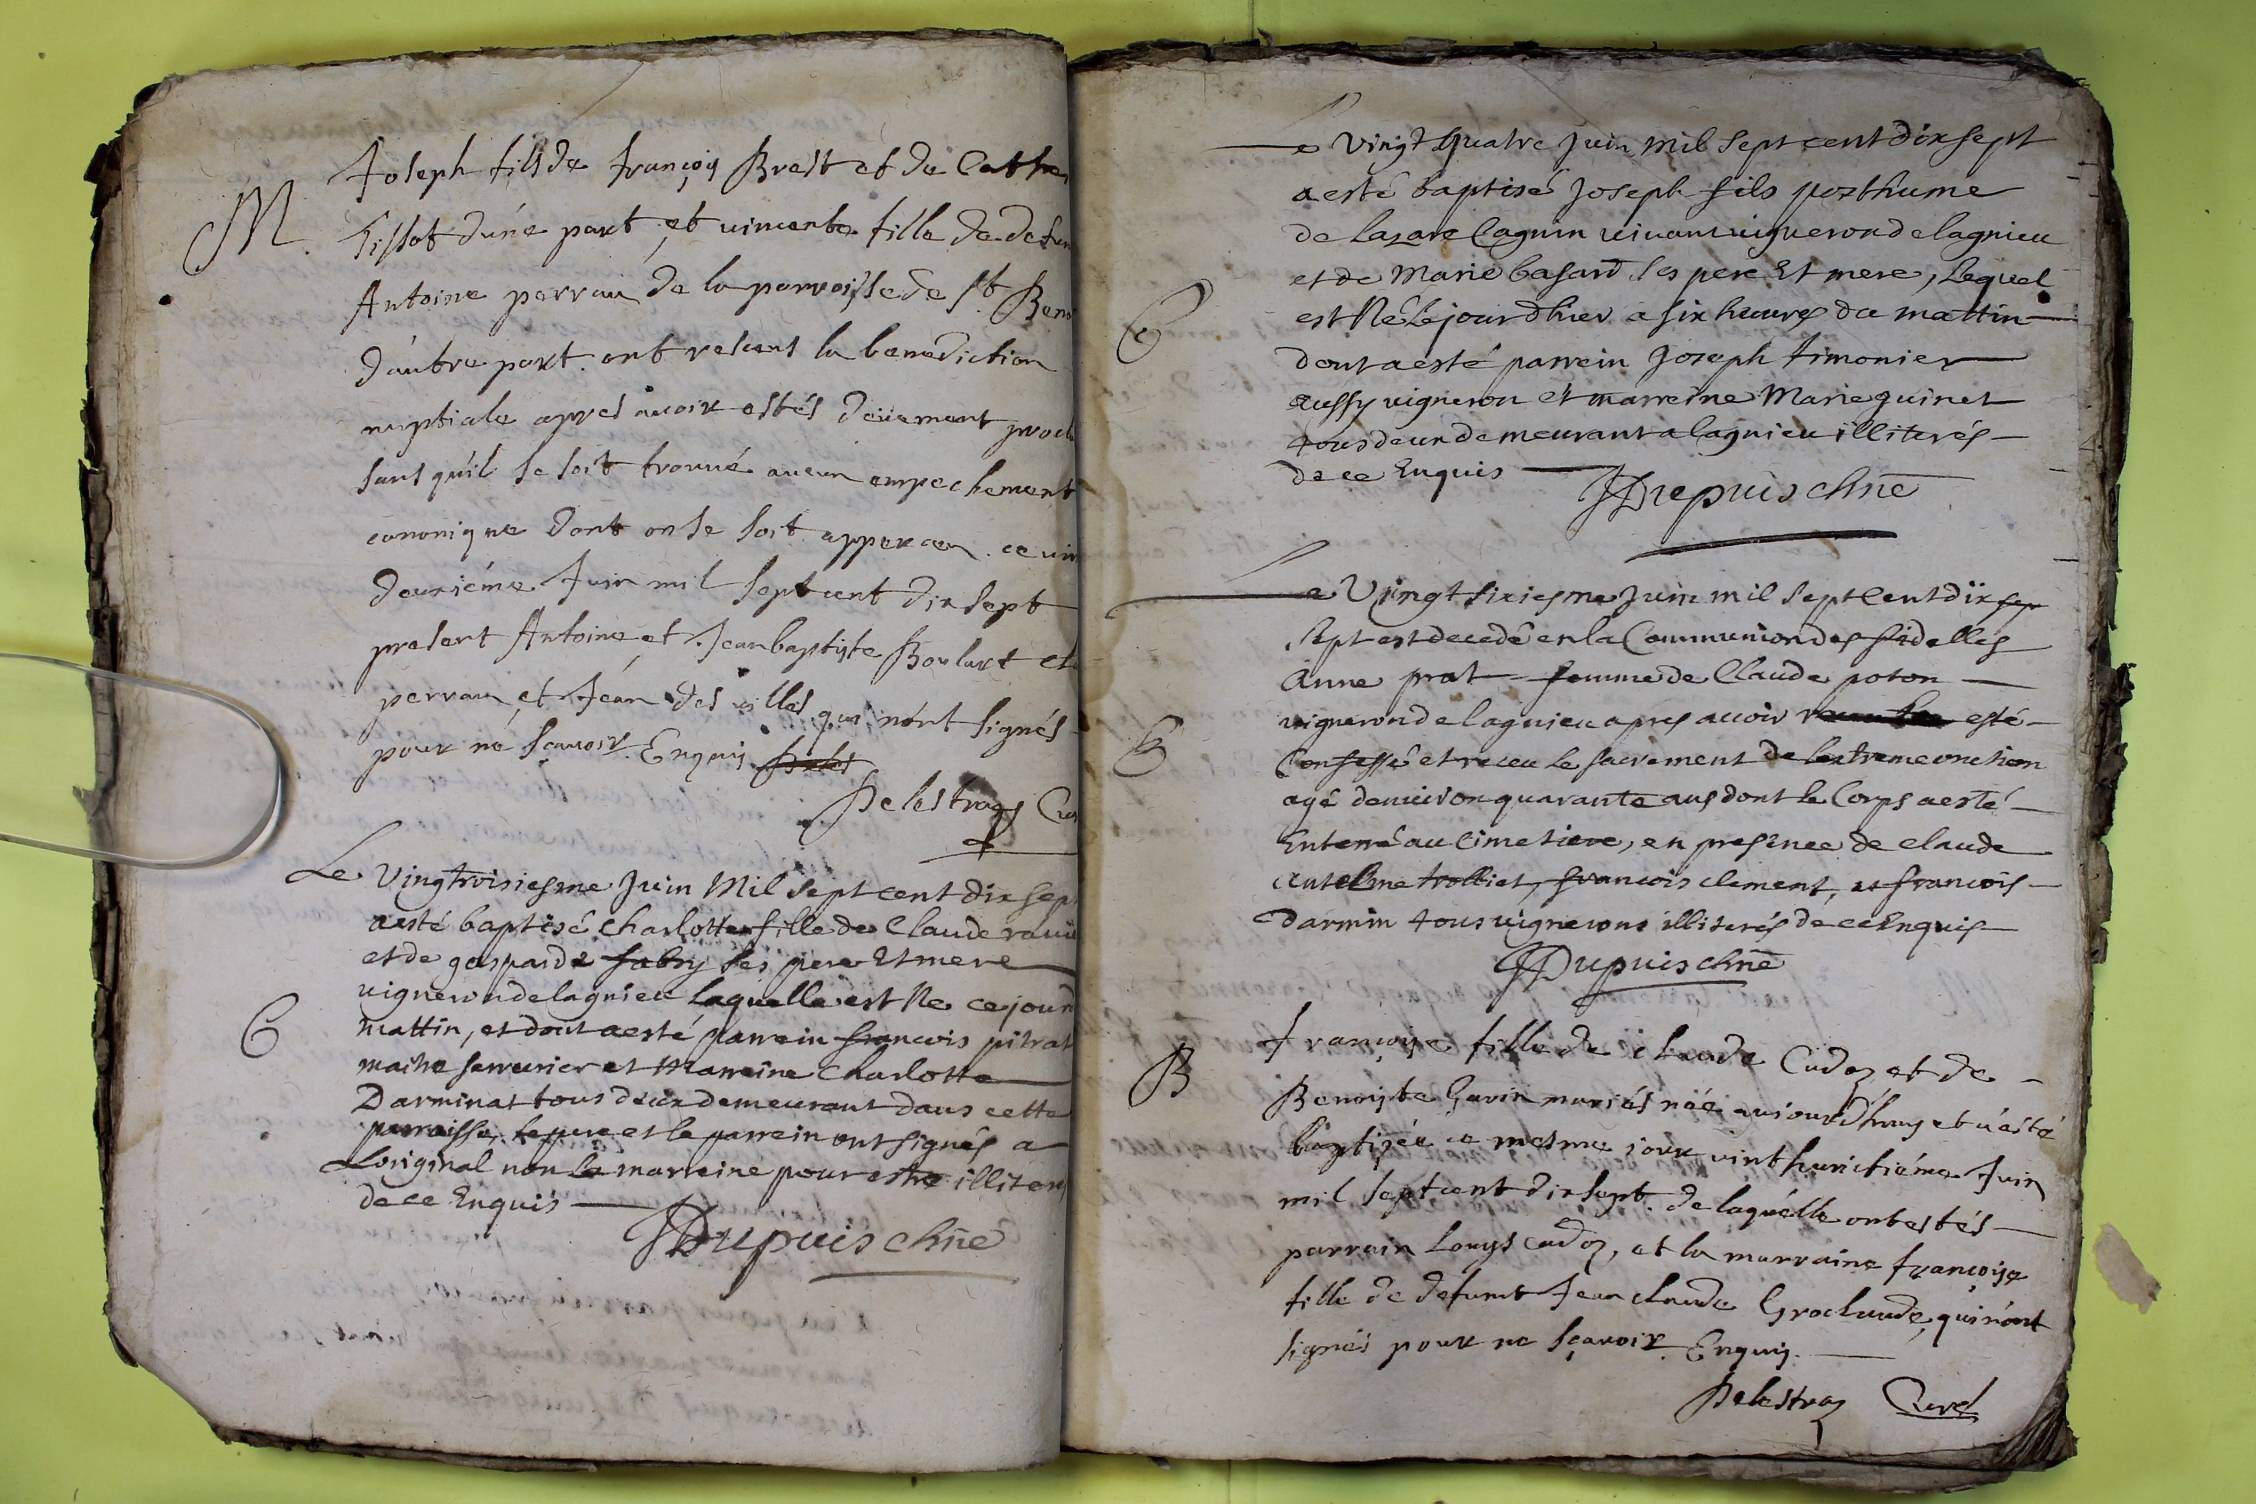 M.
Joseph fils de françois Brest et de Cathe
Tissot d'une part, et vincente fille de defun
Antoine perrau de la parroisse de st. Beno
d'autre part. ont receus la benediction
nuptiale apres avoir estés deüement procl
sans qu'il se soit trouué aucun empechement
canonique dont on se soit apperceu. ce vin
deuxiéme Juin mil sept cent dix sept
present Antoine et Jean baptiste Boulart et
perrau et Jean des villes qui n'ont signés
pour ne sçauoir. Enquis
Delestraz Cur
C
Le Vingtroisiesme Juin Mil sept cent dix sept
a esté baptisé Charlotte fille de Claude rauie
et de gasparde fabry ses pere Et mere
vigneron de lagnieu laquelle est Ne ce jourd
mattin, et dont a esté parrein francois pitrat
maitre serrurier et Marreine Charlotte
Darminat tous deux demeurant dans cette
parroisse, le pere et le parrein ont signés a
Loriginal non la marreine pour estre illiter
de ce Enquis
JDupuis chne
C
Le Vingt Quatre Juin Mil sept cent dix sept
a esté baptisé Joseph fils posthume
de Lazare Cagnin viuant vigneron de lagnieu
et de Marie basard ses pere Et mere, Lequel
est Né Le jour dhier a six heures du mattin
dont a esté parrein Joseph timonier
aussy vigneron et marreine Marie guinet
tous deux demeurant a lagnieu illiterés
de ce Enquis
JDupuis chne
Le Vingt sixiesme Juin mil sept Cent dix sep
sept est decedé en la Communion des fidelles
Anne prat femme de Claude poton
vigneron de lagnieu apres auoir esté
Confessé et receu le sacrement de lextreme onction
agé denuiron quarante ans dont le Corps a esté
Enterré au Cimetiere, en presence de claude
antelme trolliet, francois clement, et francois
darmin tous vignerons illiterés de ce Enquis
JDupuis chne
B
françoise fille de claude Cudoz et de
Benoiste Gurin mariés née aujourd'huy et a esté
baptizée ce mesme jour vint huictiéme Juin
mil sept cent dix sept. de laquelle ont estés
parrain Louys cudoz, et la marraine françoise
fille de defunt Jean claude Groclaude, qui n'ont
signés pour ne sçauoir. Enquis.
Delestraz Curé